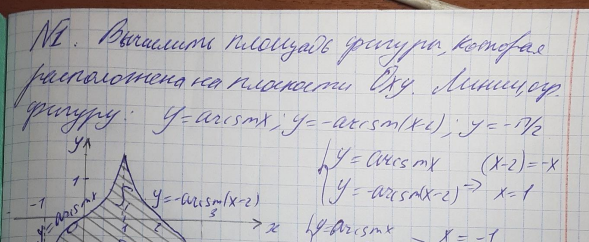 №1. Вычислить площадь фигуры, которая
расположена на плоскости Oxy. Линии, огр.
фигуру: y=arcsinx; y=-arcsin(x-2); y=-π/2
y
{y=arcsinx (x-2)=-x
{y=-arcsin(x-2) ⇒ x=1
1
-1
y=arcsinx
y=-arcsin(x-2)
1 2 3 x
{y=arcsinx x=-1